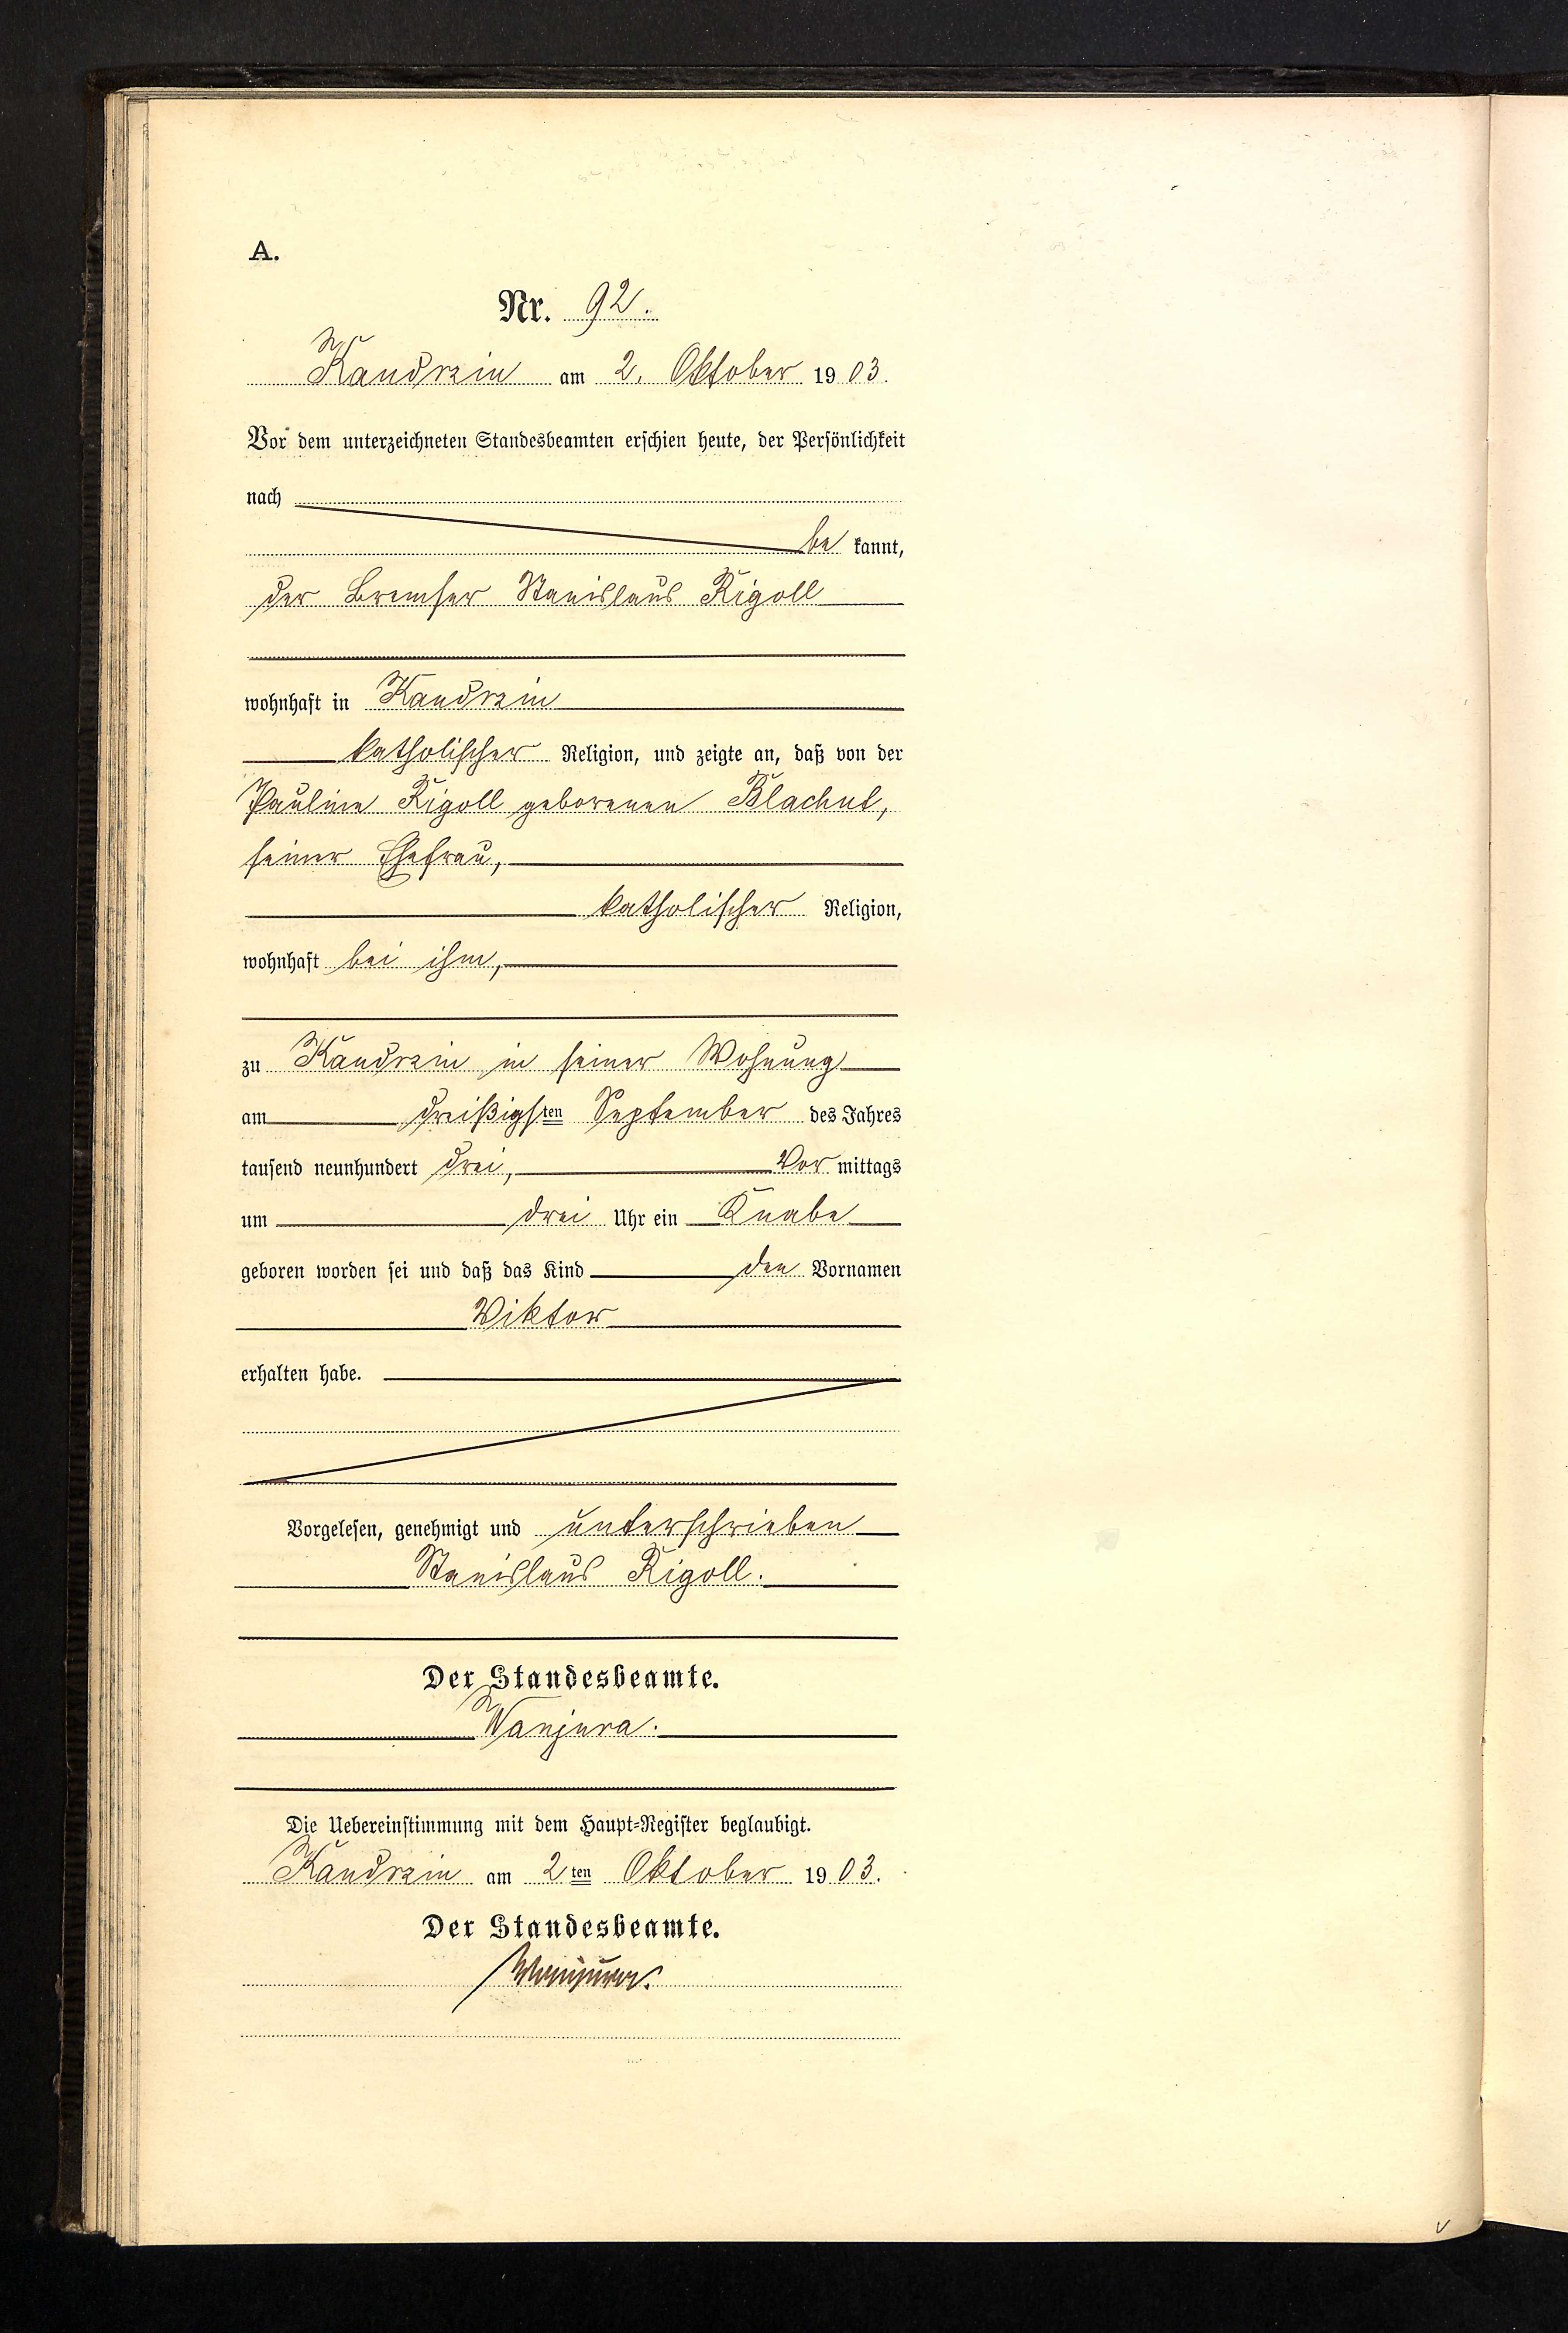 A.
Nr. 92.
Kandrzin am 2. Oktober 1903.
Vor dem unterzeichneten Standesbeamten erschien heute, der Persönlichkeit
nach
be kannt,
der Bremser Stanislaus Rigoll
wohnhaft in Kandrzin
katholischer Religion, und zeigte an, daß von der
Pauline Rigoll geborenen Blachut,
seiner Ehefrau,
katholischer Religion,
wohnhaft bei ihm,
zu Kandrzin in seiner Wohnung
am dreißigsten September des Jahres
tausend neunhundert drei, Vor mittags
um drei Uhr ein Knabe
geboren worden sei und daß das Kind den Vornamen
Viktor
erhalten habe.
Vorgelesen, genehmigt und unterschrieben
Stanislaus Rigoll.
Der Standesbeamte.
Wanjura.
Die Uebereinstimmung mit dem Haupt-Register beglaubigt.
Kandrzin am 2ten Oktober 1903.
Der Standesbeamte.
Wanjura.